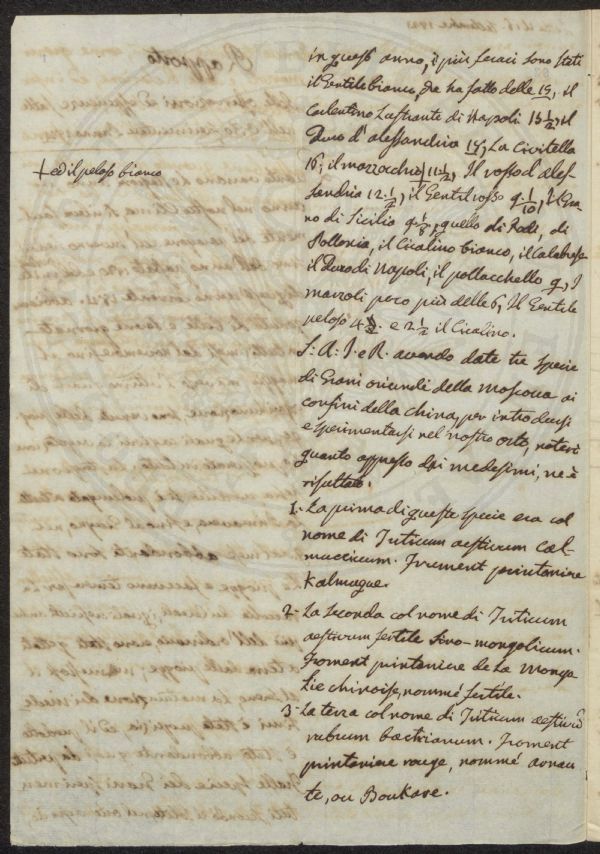 in quest' anno, i più feraci sono stati
il Gentile bianco, che ha fatto delle 19, il
Carlentino Lustrante di Napoli 13 1/2, il
Duro d'alessandria 15, La Civitella
16, il mazzocchio 11 1/2, Il rosso d'ales-
+ ed il peloso bianco
sandria 12 1/2, il Gentil rosso 9 1/10, il Gra-
no di Sicilia 9 1/8, quello di Rodi, di
Pollonia, il Cicalino bianco, il Calabrese
il Duro di Napoli, il pollacchello 9, I
marzoli poco più delle 6, Il Gentile
peloso 4. e 2 1/2 il Cicalino.
S. A. I. e R. avendo date tre specie
di Grani oriundi della Moscova ai
confini della China, per introdursi
e sperimentarsi nel nostro orto, noterò
quanto appresso dei medesimi, ne è
risultato.
1. La prima di queste specie era col
nome di Triticum aestivum Cal-
muccicum. Frument printaniere
Kalmague.
2. La seconda col nome di Triticum
aestivum fertile Sino-mongolicum.
Froment printaniere de la Monga
lie chinoise, nommé fertile.
3. La terza col nome di Triticum aestivũ
rubrum bactrianum. Froment
printaniere rouge, nommé arnau
te, ou Boukare.